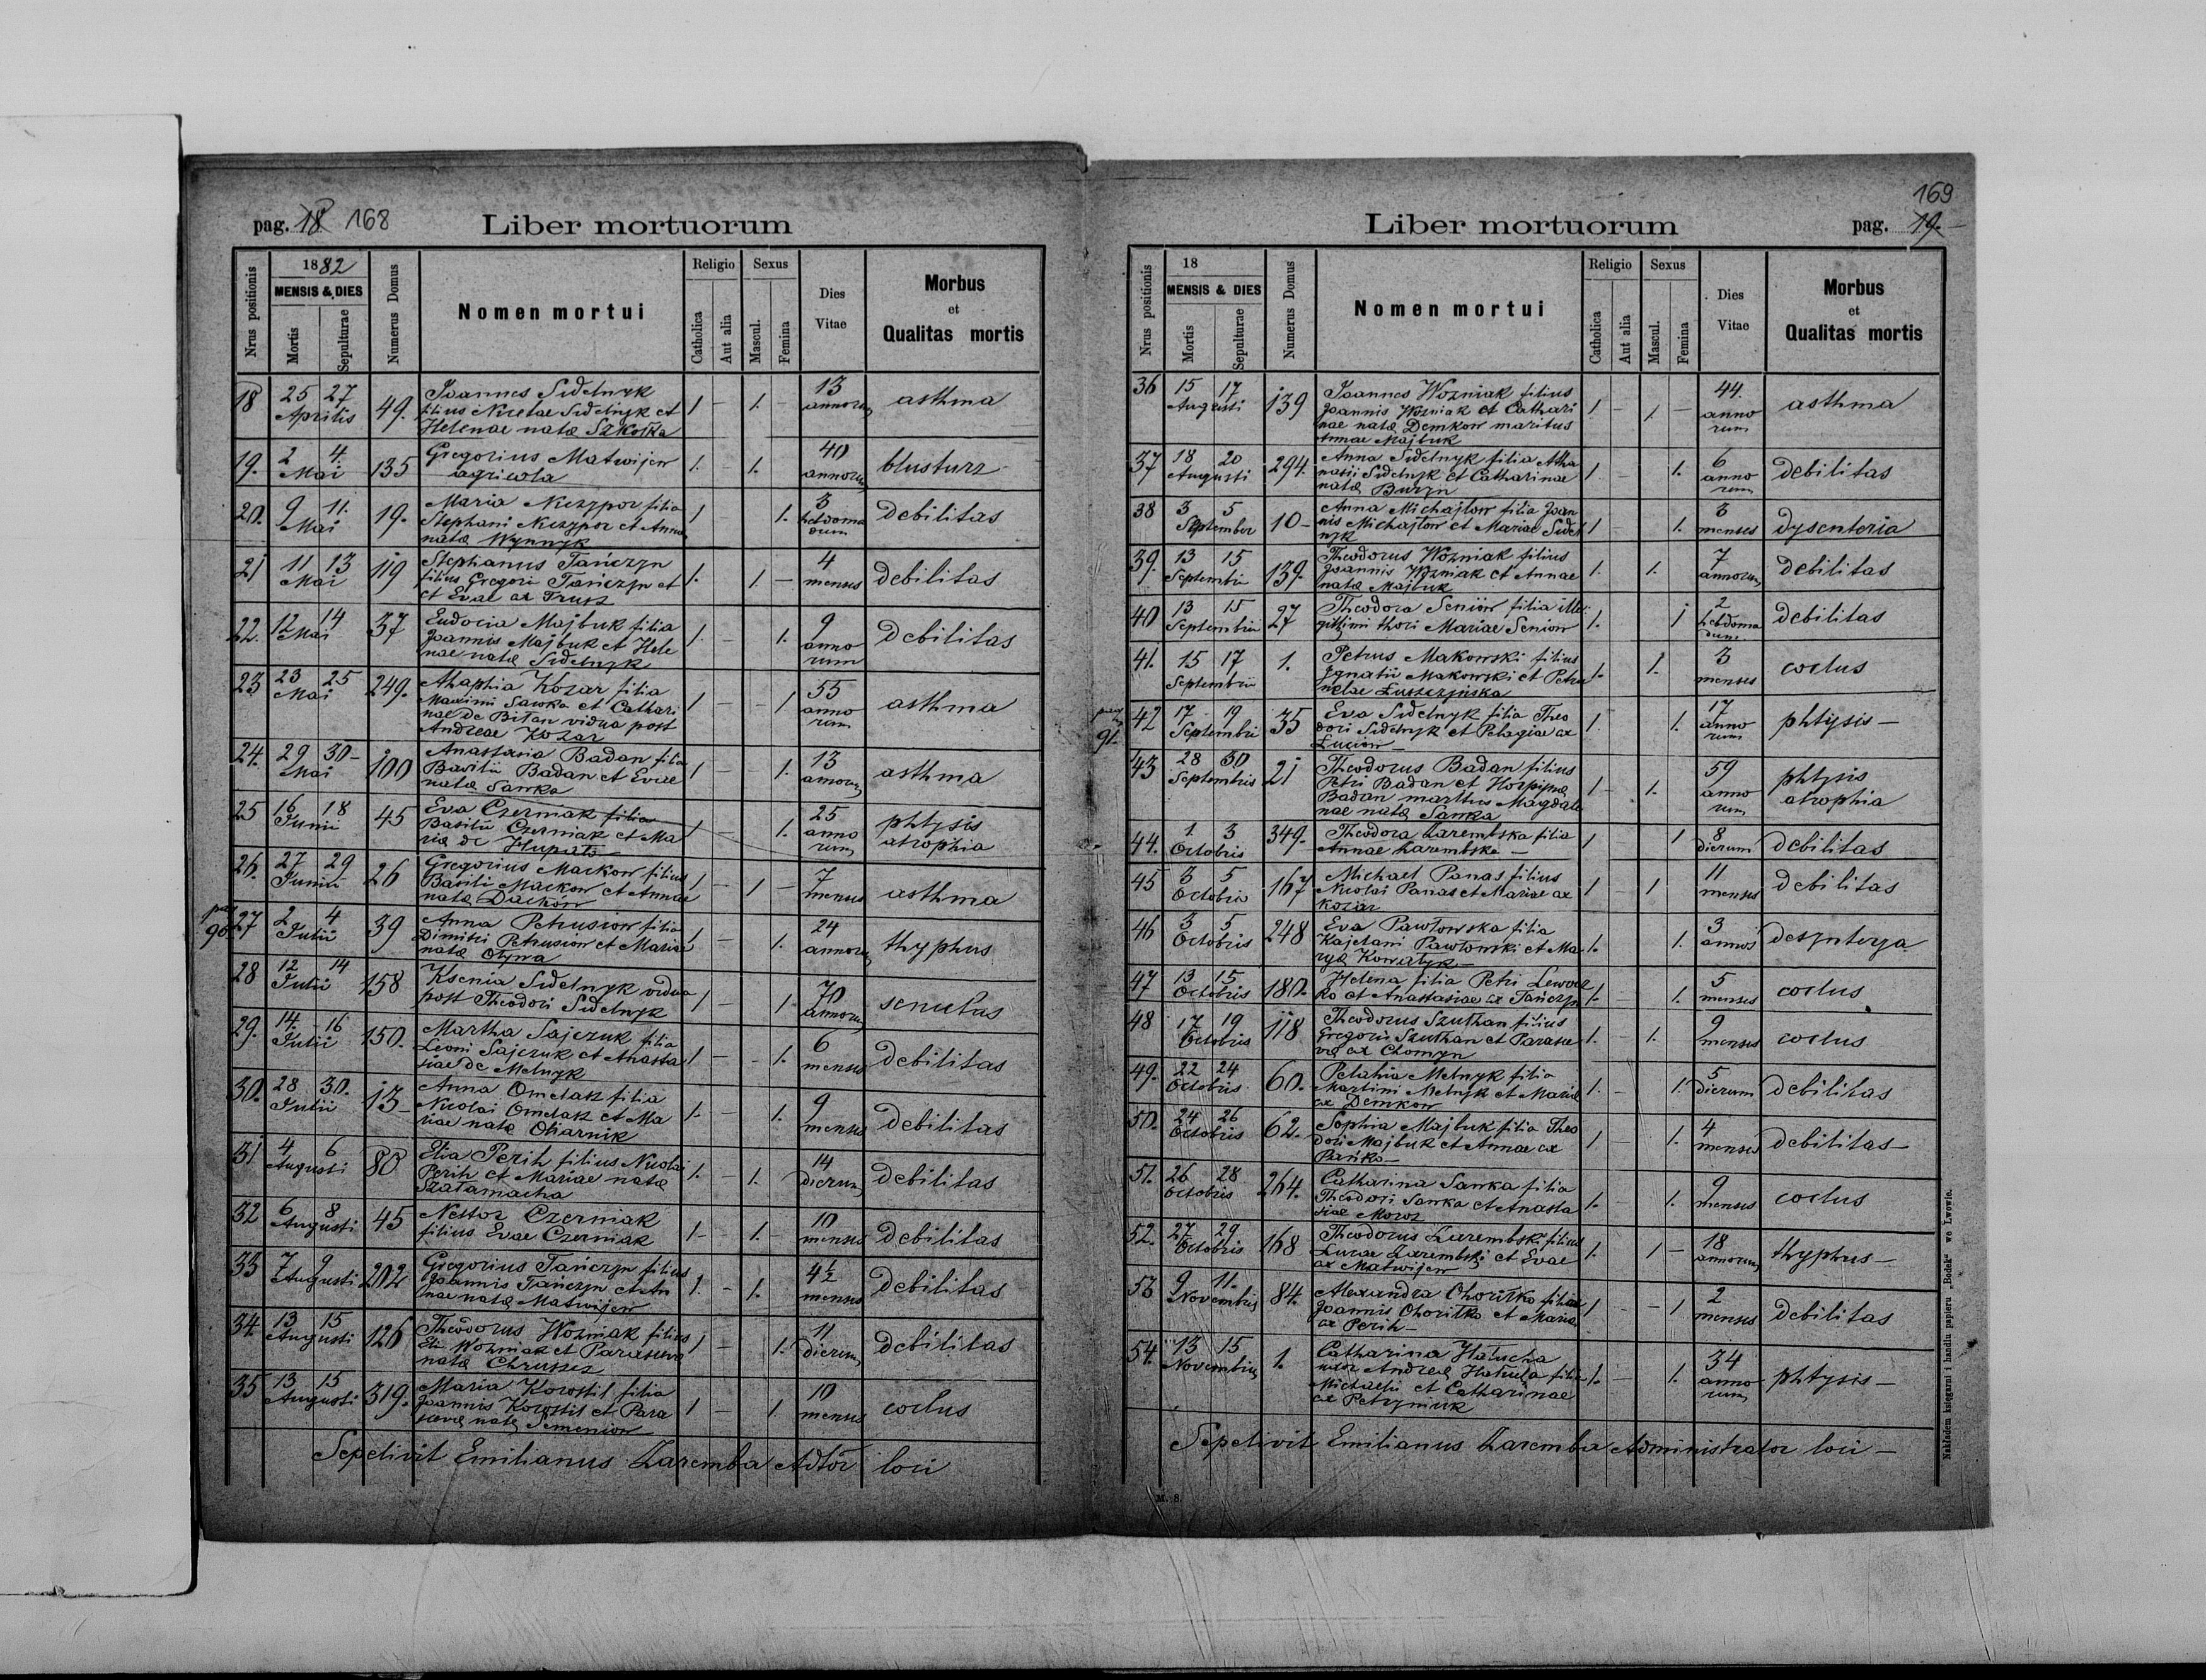 pag. 18. 168
Liber mortuorum
Nrus positionis
1882
MENSIS & DIES
Mortis
Sepulturae
Numerus Domus
Nomen mortui
Religio
Catholica
Aut alia
Sexus
Mascul.
Femina
Dies
Vitae
Morbus
et
Qualitas mortis
18 25 27 Aprilis 49. Joannes Sidelnyk 1 - 1. - 13 annorum asthma
filius Nicetae Sidelnyk et
Helenae nata
19. 2 4. Mai 135 Gregorius Matwijew 1. 1. 40 annorum blusturz
agricola
20. 9 11. Mai 19. Maria Niczypor filia 1 1. 3 hebdoma dum debilitas
Stephani Niczypor et Anna
nata Wynnyk
21 11 13 Mai 119 Stephanus Tańczyn 1. 1. - 4 menses debilitas
filius Gregorii Tańczyn et
et Evae ex
22. 12 14 Mai 37 Eudocia Majbuk filia 1. - 1. 9 anno rum debilitas
Joannis Majbuk et Hele
nae nata Sidelnyk
23 23 25 Mai 249. Ahaphia Kozar filia 1 - - 1 55 anno rum asthma
Maximi Sawka et Cathari
nae de Bilan vidua post
Andreae Kozar
24. 29 30- Mai 100 Anastasia Badan filia 1 - 1. 13 annorum asthma
Basilii Badan et Evae
nata Sawka
25 16 18 Junii 45 Eva Czerniak filia 1 - 1. 25 anno rum phtysis
Basilii Czerniak et Ma atrophia
ria de Hupało
26. 27 29 Junii 26 Gregorius Mackow filius 1 - 1 - 7 menses asthma
Basili Mackow et Annae
nata Dackow
pag 90 27 2 4 Julii 39 Anna Petrusiow filia 1 - 1. 24 annorum thyphus
Dimitri Petrusiow et Maria
nata Olynva
28 12 14 Julii 158 Ksenia Sidelnyk vidua 1 - 1. 70 annorum senectus
post Theodori Sidelnyk
29. 14. 16 Julii 150. Martha Sajczuk filia 1 - - 1. 6 menses debilitas
Leoni Sajczuk et Anasta
siae de Melnyk
30. 28 30. Julii 13- Anna Omelasz filia 1. - 1. 9 menses debilitas
Nicolai Omelasz et Ma
riae nata Oliarnik
31 4 6 Augusti 80 Elia Perih filius Nicolai 1. - 1. 14 dierum debilitas
Perih et Mariae nata
Szałamacha
32 6 8 Augusti 45 Nestor Czerniak 1- 1. 10 menses debilitas
filius Evae Czerniak
33 7 9 Augusti 202 Gregorius Tańczyn filius 1. - 1. 4½ menses debilitas
Joannis Tańczyn et An
nae nata Matwijew
34. 13 15 Augusti 126 Theodorus Wozniak filius 1 - 1. 11 dierum debilitas
Eli Wozniak et Parasceva
nata
35 13 15 Augusti 319. Maria Korostil filia 1 - 1. 10 menses coclus
Joannis Korostil et Para
sceva nata Semeniow
Sepelivit Emilianus Zaremba Adtor loci
169
Liber mortuorum
pag. 19.
Nrus positionis
18
MENSIS & DIES
Mortis
Sepulturae
Numerus Domus
Nomen mortui
Religio
Catholica
Aut alia
Sexus
Mascul.
Femina
Dies
Vitae
Morbus
et
Qualitas mortis
36 15 17 Augusti 139 Joannes Wozniak filius 1 - 1 - 44. anno rum asthma
Joannis Wozniak et Cathari
nae nata Demkow maritus
Annae Majbuk
37 18 20 Augusti 294. Anna Sidelnyk filia Atha 1 - 1. 6 anno rum debilitas
nasii Sidelnyk et Catharinae
nata Buryn
38 3 5 September 10- Anna Michajlow filia Joan 1 - 1. 3 menses dysenteria
nis Michajlow et Mariae Sidel
nyk
39. 13 15 Septembris 139. Theodorus Wozniak filius 1. 1. 7 annorum debilitas
Joannis Wozniak et Annae
nata Majbuk
40 13 15 Septembris 27 Theodora Seniow filia ille 1. 1 2 hebdoma dum debilitas
gittimi thori Mariae Seniow
41. 15 17 Septembris 1. Petrus Makowski filius 1. 1. 3 menses coclus
Ignatii Makowski et Petro
nelae Luszczyńska
pag 91. 42 17 19 Septembris 35 Eva Sidelnyk filia Theo 1. 1. 17 anno rum phtysis-
dori Sidelnyk et Pelagiae ex
Luciow
43 28 30 Septembris 21 Theodorus Badan filius 1 - 1. 59 anno rum phtysis
Petri Badan et Horpyna atrophia
Badan maritus Magdale
nae nata Sawka
44. 1. 3 Octobris 349. Theodora Zarembska filia 1 1 8 dierum debilitas
Annae Zarembska -
45 3 5 Octobris 167 Michael Panas filius 1 1 11 menses debilitas
Nicolai Panas et Mariae ex
Kozar
46 3 5 Octobris 248 Eva Pawłowska filia 1. 1. 3 annos desynterya
Kajetani Pawłowski et Ma
rya Kowalyk
47 13 15 Octobris 180. Helena filia Petri 1. - 1. 5 menses coclus
ko et Anastasiae ex Tańczyn
48 17 19 Octobris 118 Theodorus Szuthan filius 1. - 1. 9 menses coclus
Gregorii Szuthan et Parasce
va ex Chomyn
49. 22 24 Octobris 60. Pelahia Melnyk filia 1. - 1. 5 dierum debilitas
Martini Melnyk et Maria
ex Demkow
50. 24 26 Octobris 62. Sophia Majbuk filia Theo 1 - 1. 4 menses debilitas-
dori Majbuk et Annae ex
Pańko-
51. 26 28 Octobris 264. Catharina Sawka filia 1. - 1. 9 menses coclus
Theodori Sawka et Anasta
siae Moroz
52. 27 29 Octobris 168 Theodorus Zarembski filius 1. 1 - 18 annorum thyphus-
Lucae Zarembski et Evae
ex Matwijew
53 9 11. Novembris 84. Alexandra Choritko filia 1 - - 1 2 menses debilitas
Joannis Choritko et Maria
ex Perih-
54. 13 15 Novembris 1. Catharina Hałucha 1. - 1. 34 anno rum phtysis-
uxor Andrea Hałucha filia
Michaeli et Catharinae
ex Petryniuk
Sepelivit Emilianus Zaremba Administrator loci -
M. 8.
Nakładem księgarni i handlu papieru „Bodek" we Lwowie.